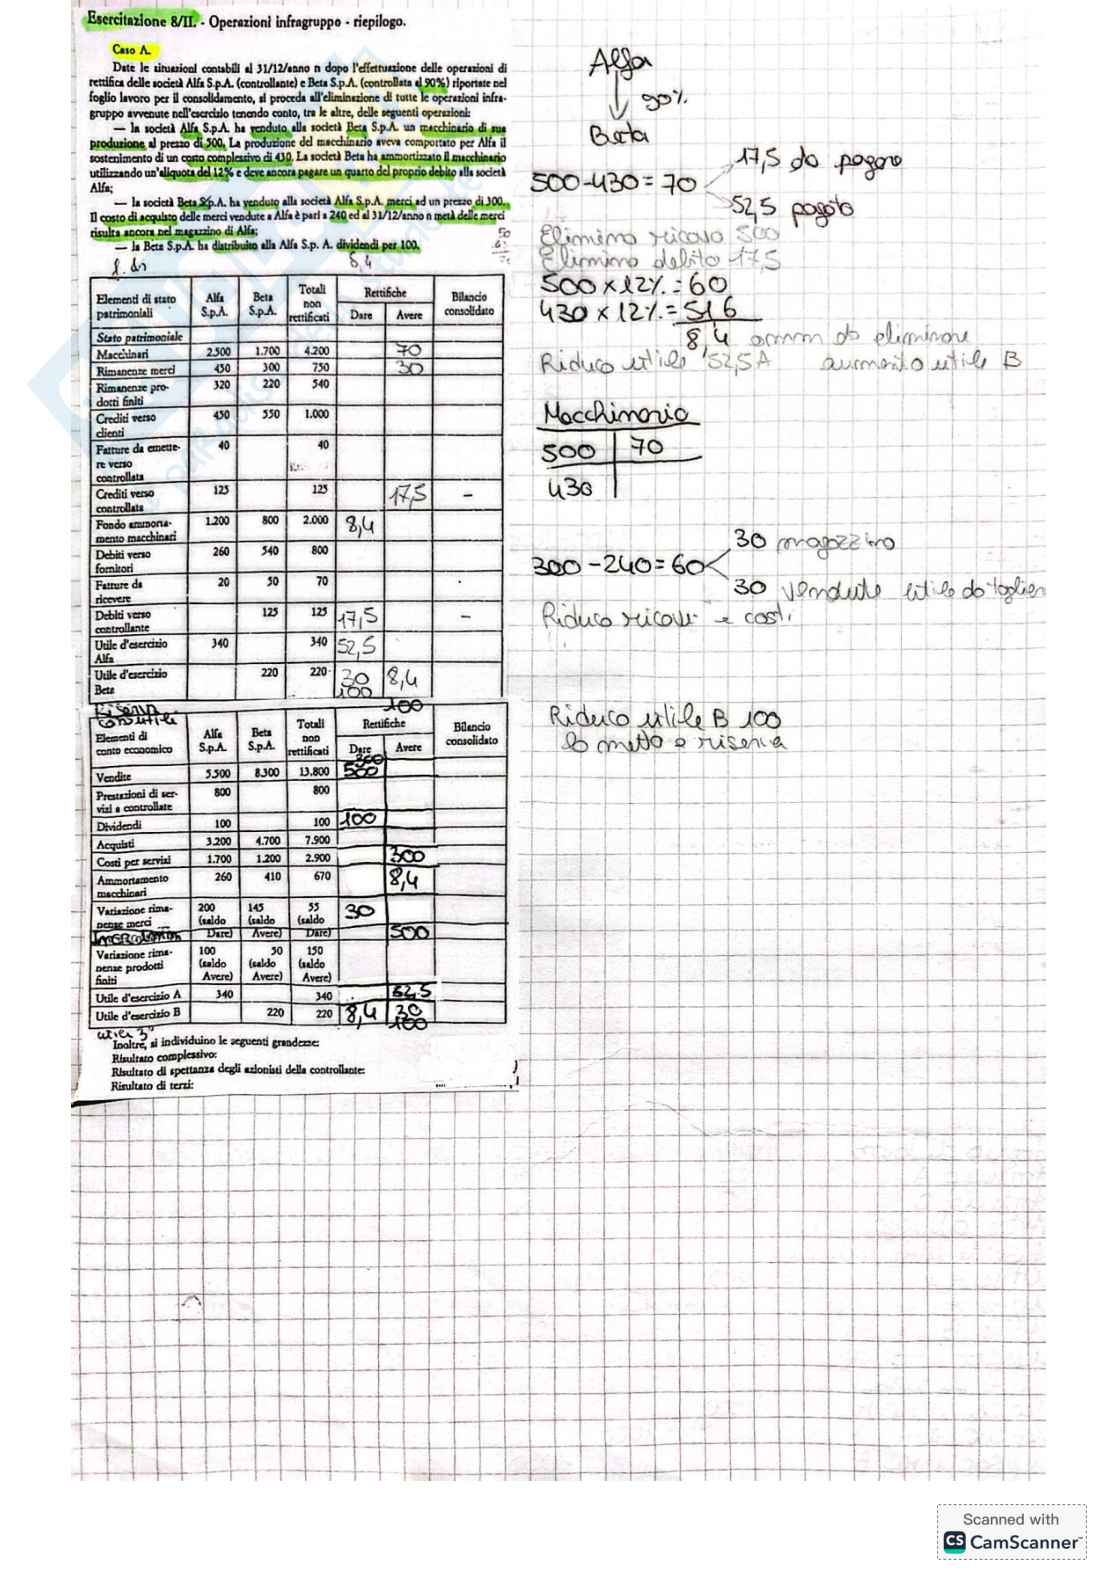 Esercitazione 8/II. - Operazioni infragruppo - riepilogo.
Caso A.
Date le situazioni contabili al 31/12/anno n dopo l'effettuazione delle operazioni di
rettifica delle società Alfa S.p.A. (controllante) e Beta S.p.A. (controllata al 90%) riportate nel
foglio lavoro per il consolidamento, si proceda all'eliminazione di tutte le operazioni infra-
gruppo avvenute nell'esercizio tenendo conto, tra le altre, delle seguenti operazioni:
— la società Alfa S.p.A. ha venduto alla società Beta S.p.A. un macchinario di sua
produzione al prezzo di 500. La produzione del macchinario aveva comportato per Alfa il
sostenimento di un costo complessivo di 430. La società Beta ha ammortizzato il macchinario
utilizzando un'aliquota del 12% e deve ancora pagare un quarto del proprio debito alla società
Alfa;
— la società Beta S.p.A. ha venduto alla società Alfa S.p.A. merci ad un prezzo di 300.
Il costo di acquisto delle merci vendute a Alfa è pari a 240 ed al 31/12/anno n metà delle merci
risulta ancora nel magazzino di Alfa;
— la Beta S.p.A. ha distribuito alla Alfa S.p. A. dividendi per 100.
8,4
Elementi di stato patrimoniali Alfa S.p.A. Beta S.p.A. Totali non rettificati Rettifiche Dare Avere Bilancio consolidato
Stato patrimoniale
Macchinari 2.500 1.700 4.200 70
Rimanenze merci 450 300 750 30
Rimanenze pro-
dotti finiti 320 220 540
Crediti verso
clienti 450 550 1.000
Fatture da emette-
re verso
controllata 40 40
Crediti verso
controllata 125 125 17,5 –
Fondo ammorta-
mento macchinari 1.200 800 2.000 8,4
Debiti verso
fornitori 260 540 800
Fatture da
ricevere 20 50 70
Debiti verso
controllante 125 125 17,5 –
Utile d'esercizio
Alfa 340 340 52,5
Utile d'esercizio
Beta 220 220 30 8,4
100
Riserva
con utile 100
Elementi di conto economico Alfa S.p.A. Beta S.p.A. Totali non rettificati Rettifiche Dare Avere Bilancio consolidato
300
Vendite 5.500 8.300 13.800 500
Prestazioni di ser-
vizi a controllate 800 800
Dividendi 100 100 100
Acquisti 3.200 4.700 7.900
Costi per servizi 1.700 1.200 2.900 300
Ammortamento
macchinari 260 410 670 8,4
Variazione rima-
nenze merci 200 (saldo Dare) 145 (saldo Avere) 55 (saldo Dare) 30
500
Variazione rima-
nenze prodotti
finiti 100 (saldo Avere) 50 (saldo Avere) 150 (saldo Avere)
Utile d'esercizio A 340 340 52,5
Utile d'esercizio B 220 220 8,4 30
100
utile 3°
Inoltre, si individuino le seguenti grandezze:
Risultato complessivo:
Risultato di spettanza degli azionisti della controllante:
Risultato di terzi:
Alfa
90%
Beta
500-430=70
17,5 da pagare
52,5 pagato
Elimino ricavo 500
Elimino debito 17,5
500 x 12% = 60
430 x 12% = 51,6
8,4 amm da eliminare
Riduco utile 52,5 A aumento utile B
Macchinario
500 70
430
300-240=60
30 magazzino
30 vendute utile da togliere
Riduco ricavi e costi
Riduco utile B 100
lo metto a riserva
Scanned with
CS CamScanner